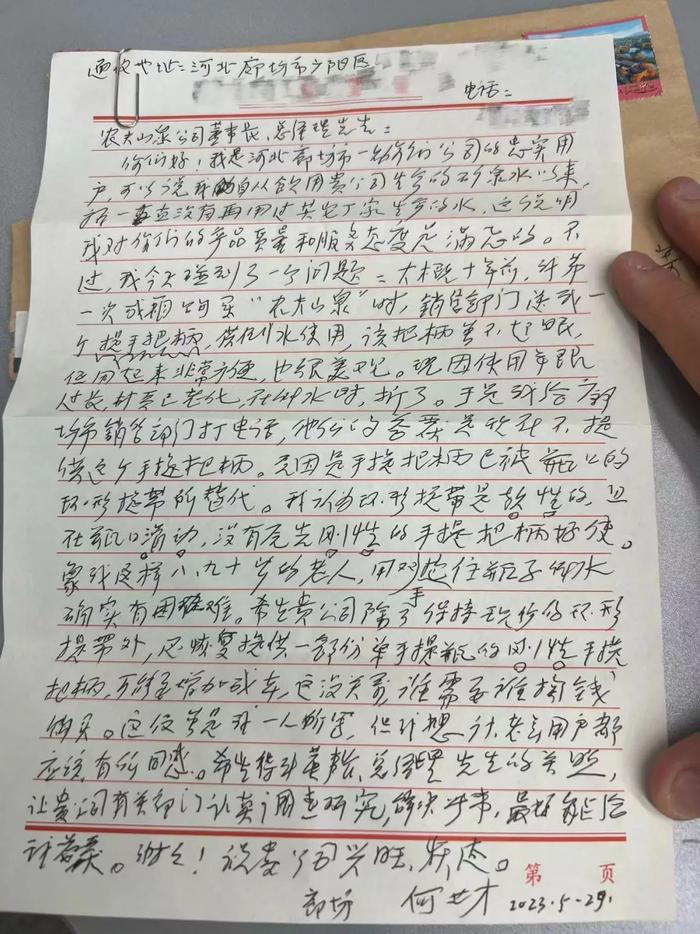 通仪地址：河北廊坊市广阳区
电话：
农夫山泉公司董事长、总经理先生：
你们好！我是河北廊坊市一名你们公司的忠实用
户，可以说我自从饮用贵公司生产的矿泉水以来，
一直没有再用过其它厂家生产的水，这说明
我对你们的产品质量和服务态度是满意的。不
过，我今天碰到了一个问题：大概十年前，我第
一次成箱购买“农夫山泉”时，销售部门送我一
个提手把柄，供倒水使用，该把柄虽不起眼，
但用起来非常方便，也很美观。现因使用年限
过长，材质已老化，在倒水时，折了。于是我给廊
坊市销售部门打电话，他们的答案是现在不提
供这个手提把柄。原因是手提把柄已被瓶口的
环形提带所替代。我认为环形提带是软性的，且
在瓶口滑动，没有原先刚性的手提把柄好使。
象我这样八、九十岁的老人，用双手抱住瓶子倒水
确实有困难。希望贵公司除了保持现份的环形
提带外，还恢复提供一部份单手提瓶的刚性手提
把柄，可能要增加成本，这没关系，谁需要谁掏钱
购买。这仅管是我一人所需，但我想，许老多用户都
应该有所同感。希望得到董事长、总经理先生的关照，
让贵公司有关部门认真调查研究，解决子节，最好能给
我答案。谢谢！祝贵公司兴旺、发达。
第 页
廊坊 何世才 2023.5-29.